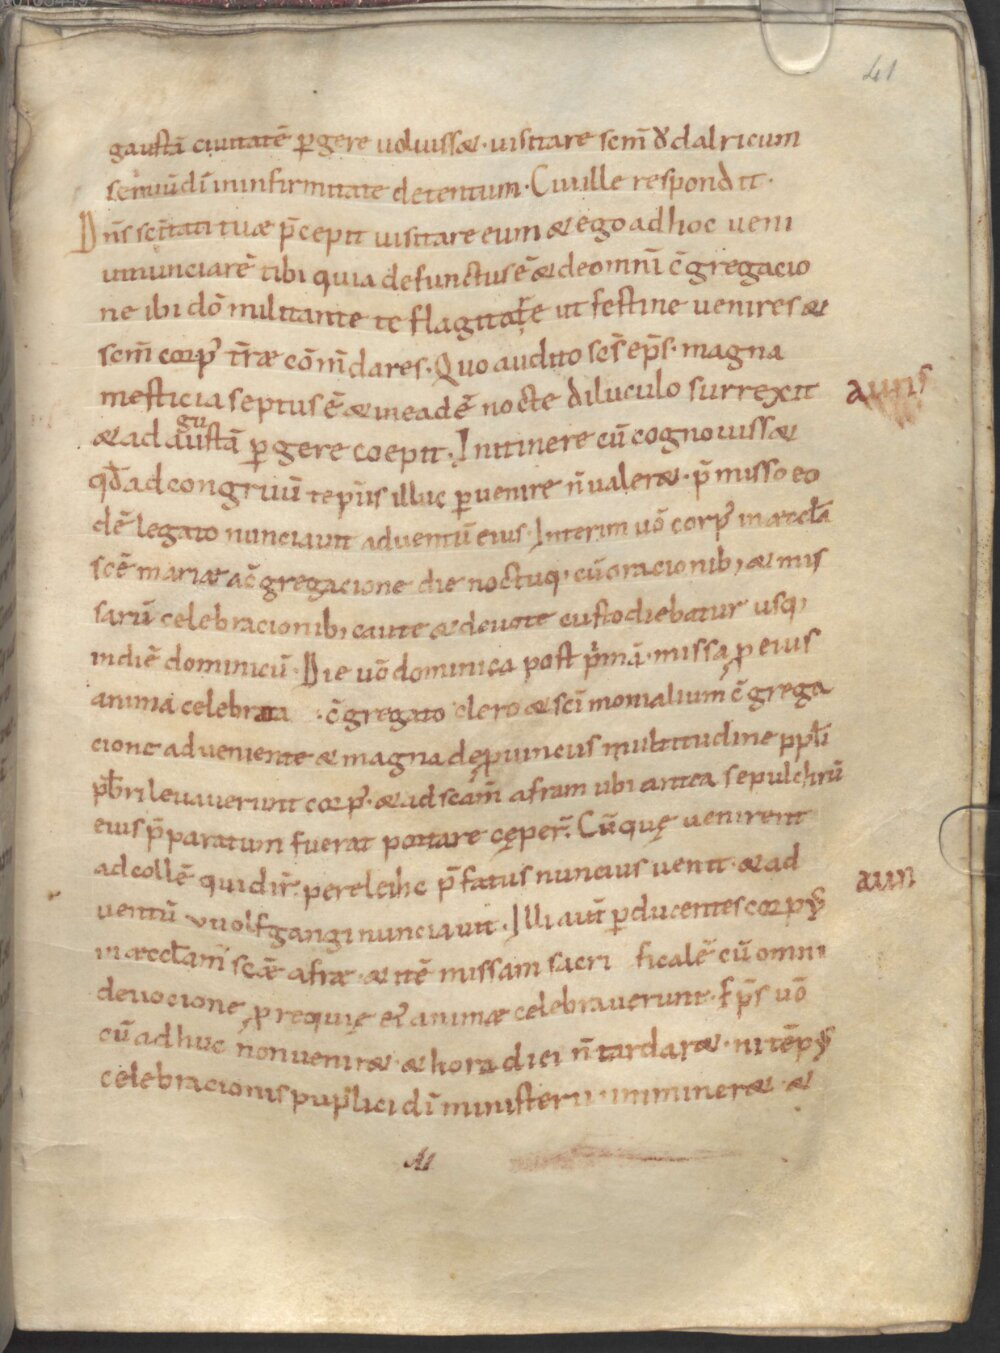 41
gaustā ciuitatē ꝑgere uoluisset· uisitare scm̄ Ꝩdalricum
seruū dī in infirmitate detentum· Cui ille respondit·
Dn̄s scītati tuæ p̄cepit uisitare eum & ego ad hoc ueni
ut nunciarē tibi quia defunctus ē & de omni c̄gregacio
ne ibi dō militante te flagitate ut festine uenires &
scm̄ corpꝰ tr̄æ cōm̄dares· Quo audito scs̄ ep̄s· magna
mesticia septus ē & in eadē nocte diluculo surrexit
auris
& ad augustā ꝑgere coepit· In itinere cū cognouisset
qd̄ ad congruū tēp̄is illuc ꝑuenire n̄ ualeræ· p̄misso eo
dē legato nunciauit aduentū eius· Interim uō corpꝰ in æccla̅
scē mariæ a c̄gregacione die noctuq; cū oracionib; & mis
sarū celebracionib; caute & deuote custodiebatur usq;
in diē dominicū· Die uō dominica post p̄mā· missa ꝓ eius
anima celebrata· c̄gregato clero & sc̄imonialium c̄grega
cione adueniente & magna de ꝓuincus multitudine ppl̄i
pb̄ri leuauerunt corpꝰ· & ad scām̄ afram ubi antea sepulchrū
eius p̄paratum fuerat portare cęper̄· Cūquę uenirent
ad collē qui dir̄· pereleihc p̄fatus nuncius uenit· & ad
aun
uentū uuolfgangi nunciauit· Illi aut̄ ꝑducentes corpꝰ
in æcclam̄ scǣ afræ· & itē missam sacri ficalē cū omni
deuocione ꝓ requię ei animæ celebrauerunt· Ep̄s uō
cū adhuc non uenir&· & hora diei n̄ tardar&· ni tēpꝰ
celebracionis puplici dī ministerii immineræ· &